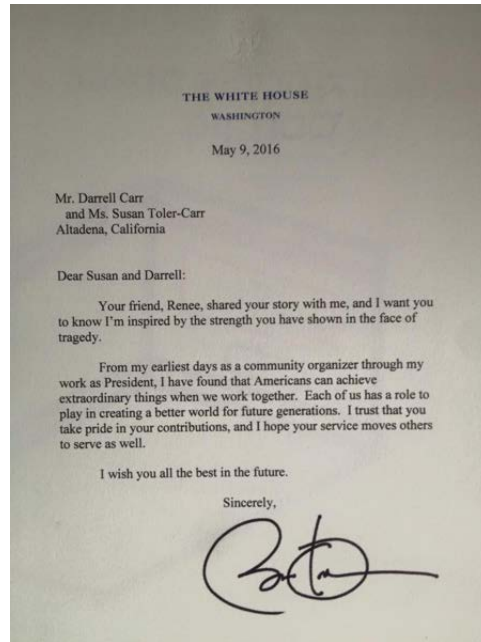 THE WHITE HOUSE
WASHINGTON
May 9, 2016
Mr. Darrell Carr
and Ms. Susan Toler-Carr
Altadena, California
Dear Susan and Darrell:
Your friend, Renee, shared your story with me, and I want you
to know I'm inspired by the strength you have shown in the face of
tragedy.
From my earliest days as a community organizer through my
work as President, I have found that Americans can achieve
extraordinary things when we work together. Each of us has a role to
play in creating a better world for future generations. I trust that you
take pride in your contributions, and I hope your service moves others
to serve as well.
I wish you all the best in the future.
Sincerely,